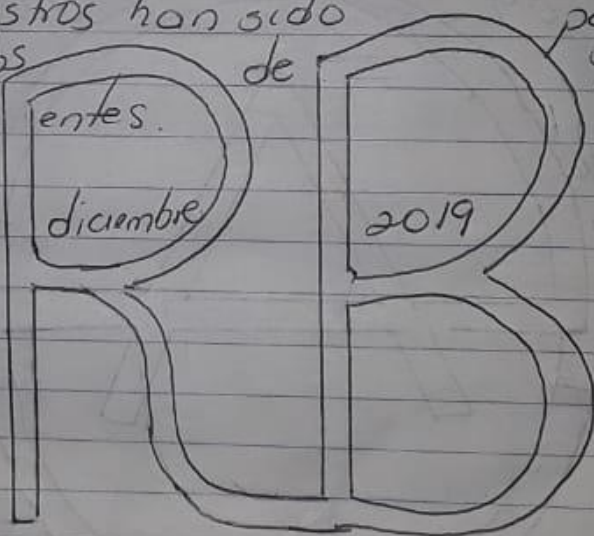 stros han sido
os de po
entes.
diciembre 2019
RB